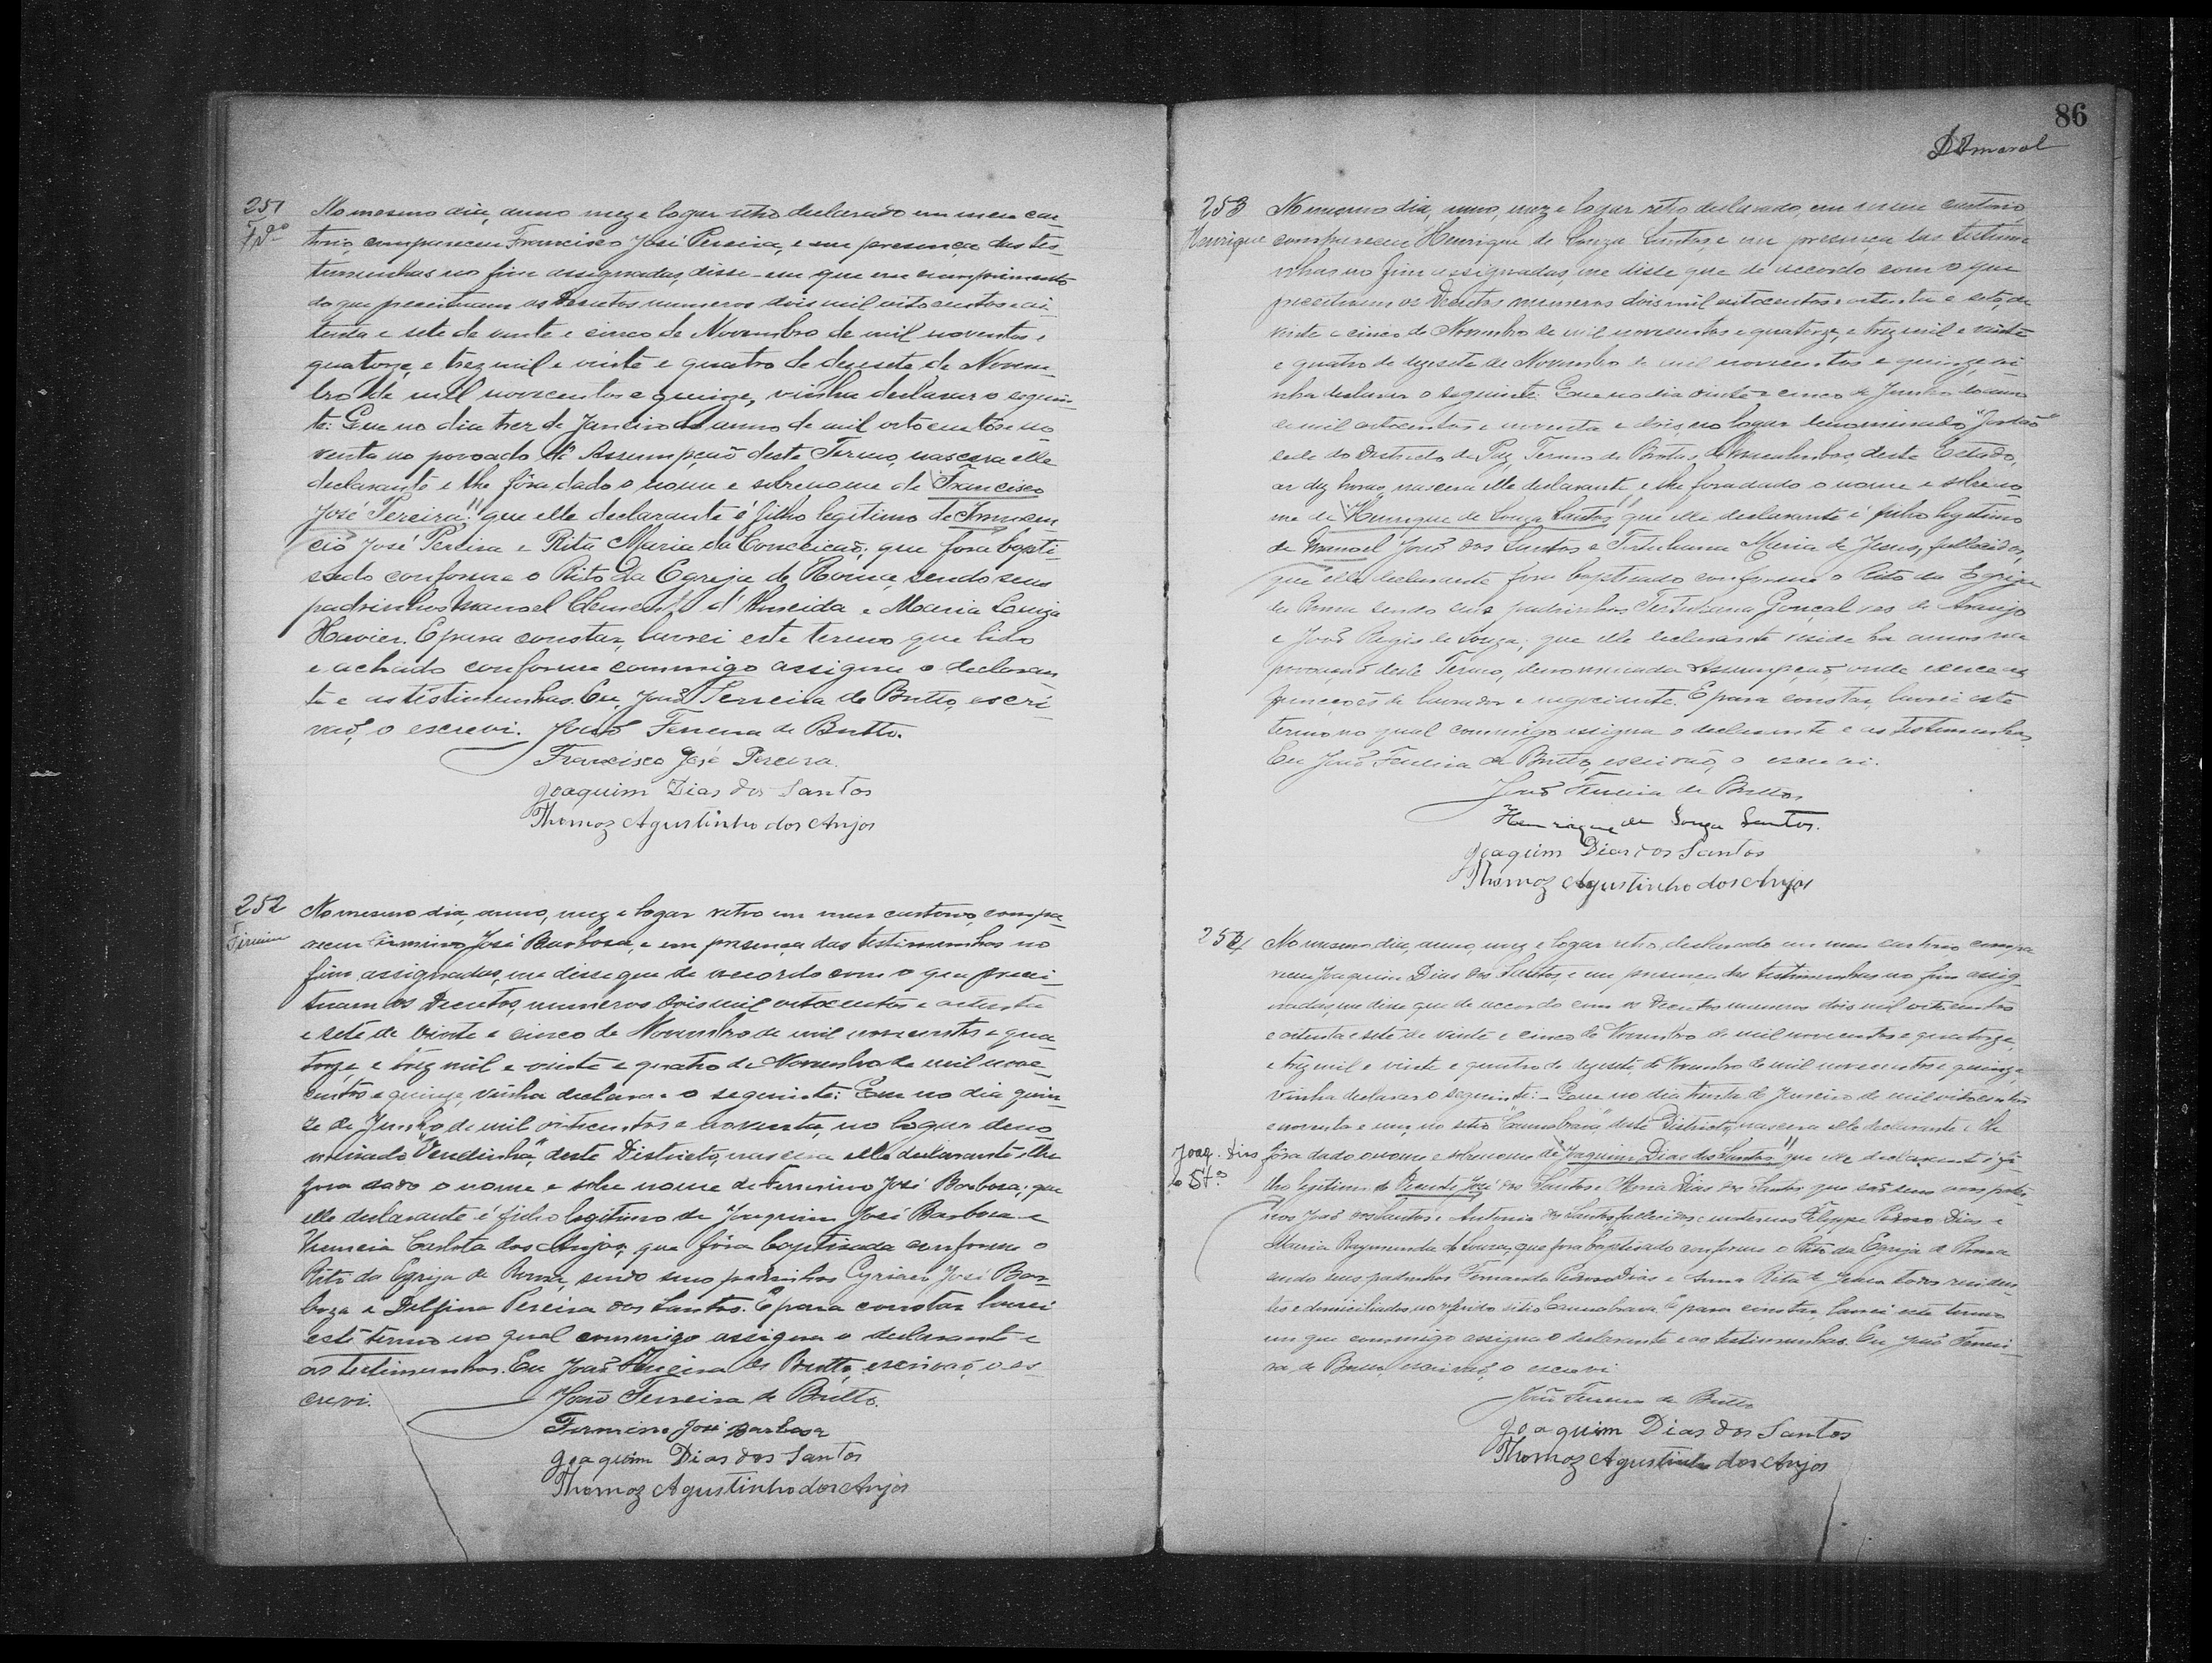 86
DAmaral
251
Fco
No mesmo dia, anno mez e logar retro declarado em meu car-
torio, compareceu Francisco José Pereira, e em presença das tes-
timunhas no fim assignadas, disse-me que em cumprimento
do que preceituam os Decretos numeros dois mil oitocentos e oi-
tenta e sete de vinte e cinco de Novembro de mil noventos e
quatorze, e trez mil e vinte e quatro de dezesete de Novem-
bro de mil novecentos e quinze, vinha declarar o seguin-
te: Que no dia trez de Janeiro do anno de mil oitocentos e no-
venta no povoado de Assumpção deste Termo, nascera elle
declarante e lhe fôra dado o nome e sobrenome de "Francisco
José Pereira" que elle declarante é filho legitimo de Innocen-
cio José Pereira e Rita Maria da Conceição; que fora bapti-
sado conforme o Rito da Egreja de Roma, sendo seus
padrinhos Manoel Clemente d'Almeida e Maria Luiza
Xavier. E para constar, lavrei este termo que lido
e achado conforme commigo assigna o declaran-
te e as testimunhas. Eu, João Ferreira de Britto, escri-
vão, o escrevi. João Ferreira de Britto.
Francisco José Pereira.
Joaquim Dias dos Santos
Thomoz Agustinho dos Anjos
252
Firmino
No mesmo dia, anno, mez e logar retro em meu cartorio, compa-
receu Firmino José Barbosa, e em presença das testimunhas no
fim assignadas, me disse que de accordo com o que precei-
tuam os Decretos, numeros dois mil oitocentos e oitenta
e sete de vinte e cinco de Novembro de mil novecentos e qua-
torze, e trez mil e vinte e quatro de Novembro de mil nove-
centos e quinze, vinha declarar o seguinte: Que no dia quin-
ze de Junho de mil oitocentos e noventa, no logar deno-
minado "Vendinha", deste Districto, nascera elle declarante e lhe
fora dado o nome e sobre nome de Firmino José Barbosa; que
elle declarante é filho legitimo de Joaquim José Barbosa e
Carlota dos Anjos; que fôra baptisada conforme o
Rito da Egreja de Roma, sendo seus padrinhos Cyriaco José Bar-
boza e Delfina Pereira dos Santos. E para constar lavrei
este termo no qual commigo assigna o declarante e
as testimunhas. Eu João Ferreira de Britto, escrivão, o es-
crevi. João Ferreira de Britto.
Firmino José Barbosa
Joaquim Dias dos Santos
Thomoz Agustinho dos Anjos
253
Henrique
No mesmo dia, anno, mez e logar retro declarado, em meu cartorio,
compareceu Henrique de Souza Santos, e em presença das testimu-
nhas no fim assignadas, me disse que de accordo com o que
preceituam os Decretos numeros dois mil oitocentos e oitenta e sete, de
vinte e cinco de Novembro de mil novecentos e quatorze, e trez mil e vinte
e quatro de dezesete de Novembro de mil novecentos e quinze, vi-
nha declarar o seguinte: Que no dia vinte e cinco de Junho do anno
de mil oitocentos e noventa e dois, no logar denominado "Jordão"
sede do Districto de Paz, Termo de Brotas de Macahubas, deste Estado,
as dez horas, nascera elle declarante, e lhe fora dado o nome e sobreno-
me de "Henrique de Souza Santos" que elle declarante é filho legitimo
de Manoel José dos Santos e Tertuliana Maria de Jesus, fallecidos,
que elle declarante fora baptisado conforme o Rito da Egreja
de Roma sendo seus padrinhos Tertuliana Gonçalves de Araujo
e José Regis de Souza; que elle declarante reside ha annos na
povoação deste Termo, denominada Assumpção onde exerce as
funcções de lavrador e negociante. E para constar, lavrei este
termo no qual commigo assigna o declarante e as testimunhas,
Eu João Ferreira de Britto, escrivão, o escrevi.
João Ferreira de Britto
Henrique de Souza Santos.
Joaquim Dias dos Santos
Thomoz Agustinho dos Anjos
254
Joaq. Dias
do Stos
No mesmo dia, anno, mez e logar retro, declarado em meu cartorio, compa-
receu Joaquim Dias dos Santos, e em presença das testimunhas no fim assig-
nadas, me disse que de accordo com os Decretos numeros dois mil oitocentos
e oitenta e sete de vinte e cinco de Novembro de mil novecentos e quatorze,
e trez mil e vinte e quatro de dezesete de Novembro de mil novecentos e quinze,
vinha declarar o seguinte:- Que no dia trinta de Janeiro de mil oitocentos
e noventa e um, no sitio "Cannabrava", deste Districto, nascera elle declarante e lhe
fôra dado o nome e sobrenome de "Joaquim Dias dos Santos" que elle declarante é fi-
lho legitimo de Vicente José dos Santos e Maria Dias dos Santos que são seus avos pater-
nos José dos Santos e Antonia dos Santos, fallecidos, e maternos Filippe Pedroso Dias e
Maria Raymunda de Souza; que fora baptisado conforme o Rito da Egreja de Roma
sendo seus padrinhos Fernando Pedroso Dias e Anna Rita de Jesus todos residen-
tes e domiciliados no referido sitio Cannabrava. E para constar, lavrei este termo
em que commigo assigna o declarante e as testimunhas. Eu João Ferrei-
ra de Britto, escrivão, o escrevi
João Ferreira de Britto
Joaquim Dias dos Santos
Thomoz Agustinho dos Anjos